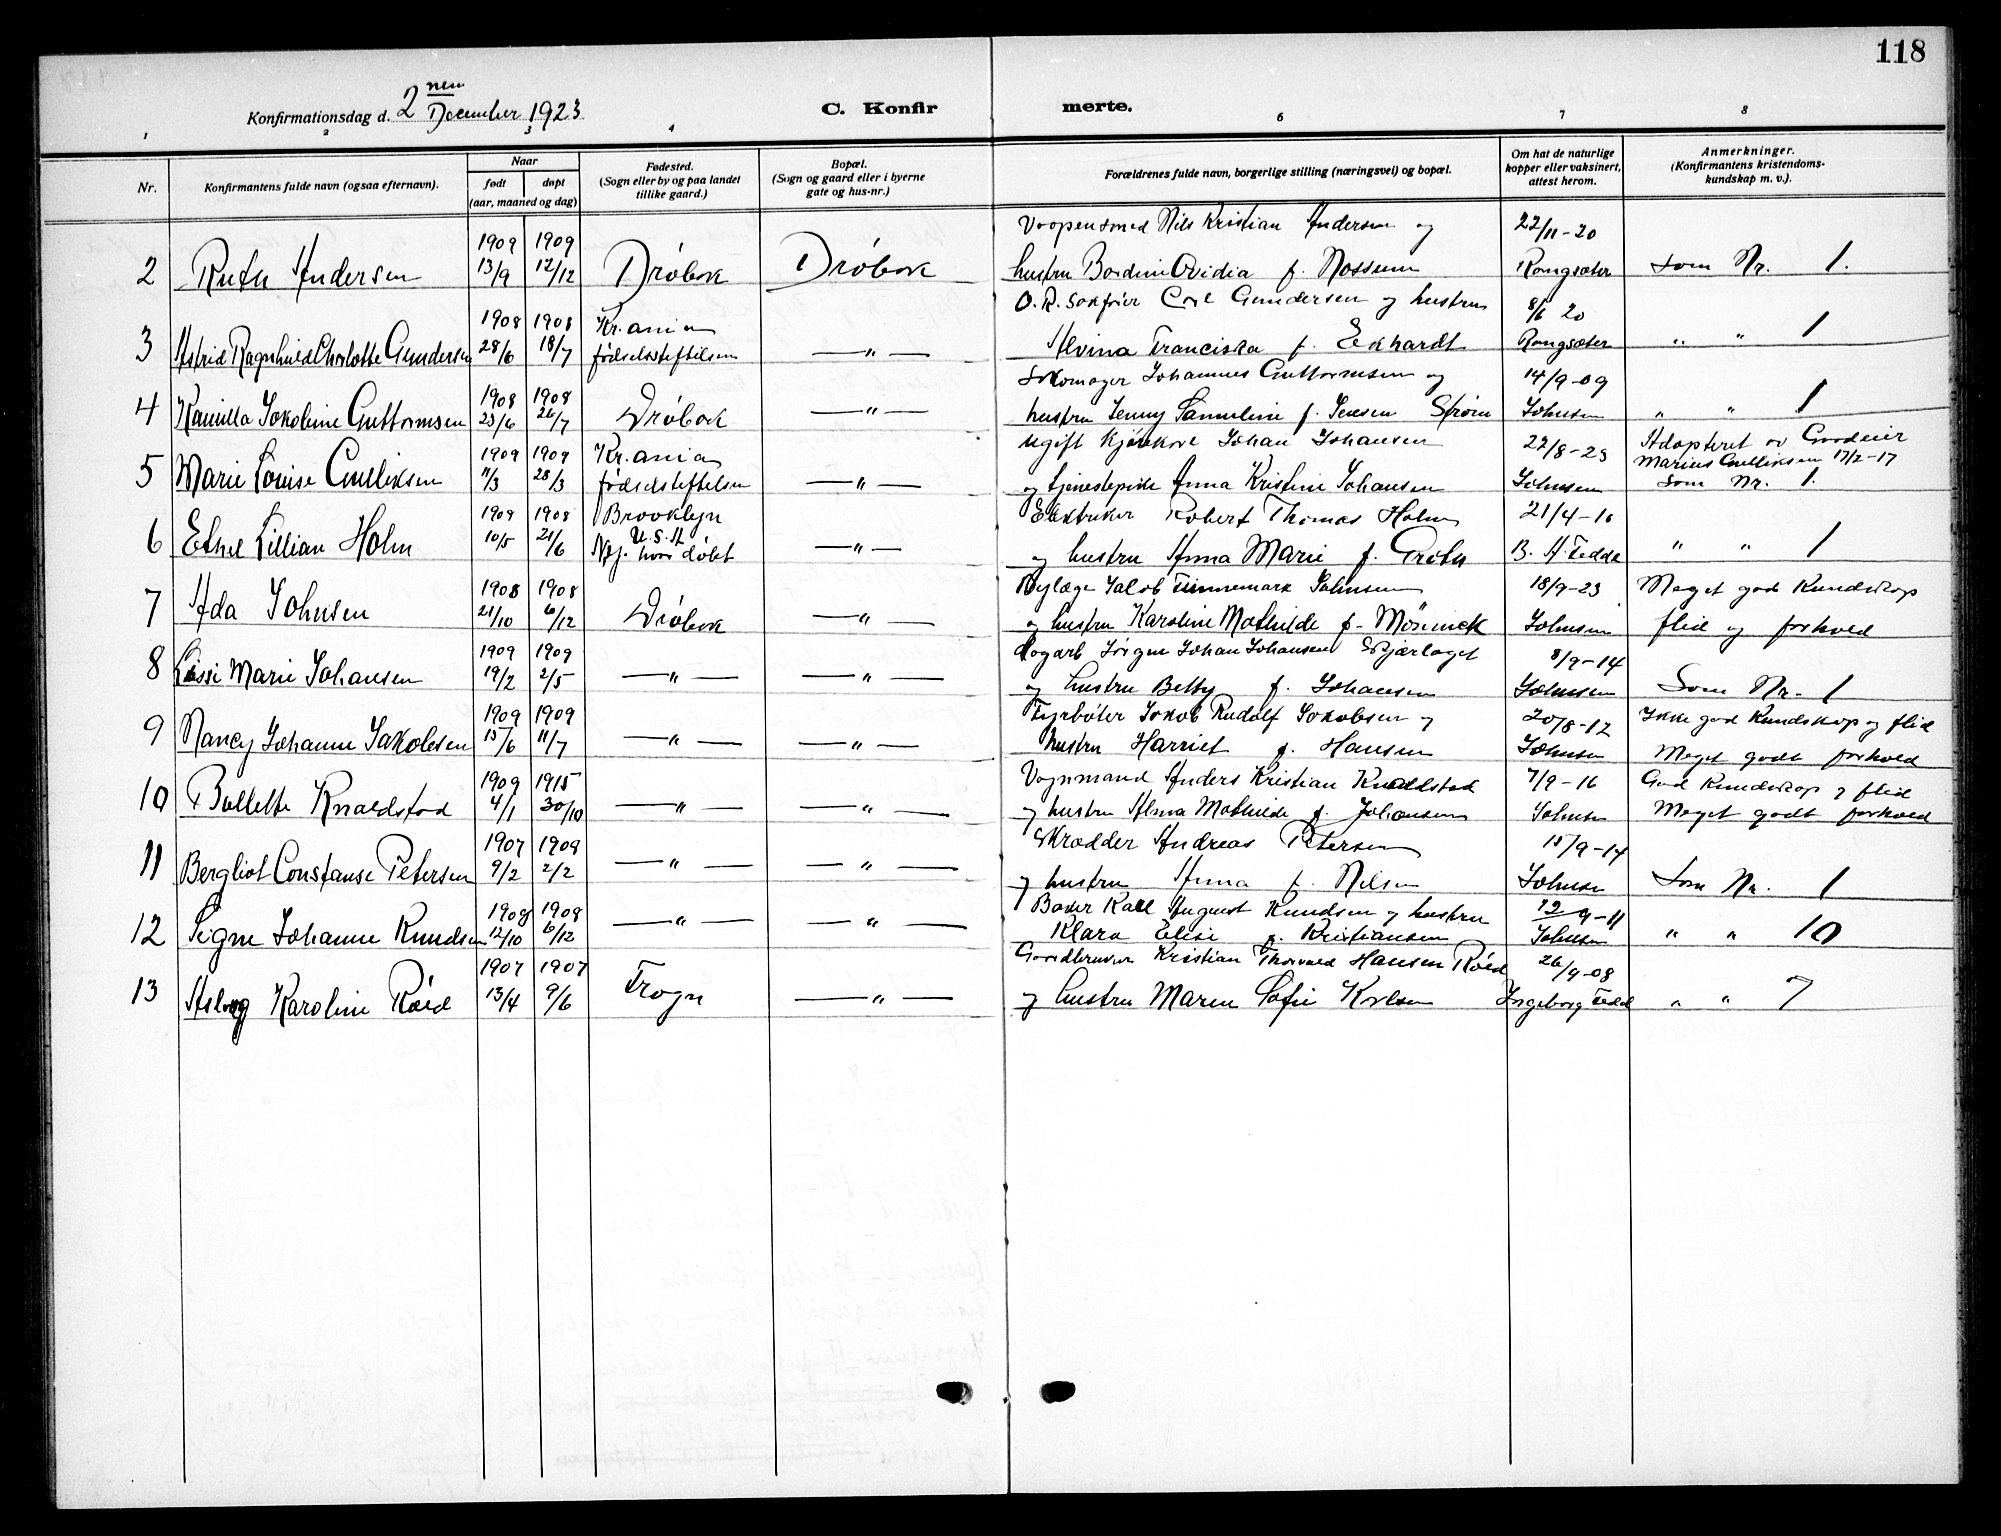 118
Konfirmationsdag d. 2nen December 1923
C. Konfir merte.
1 2 3 4 6 7 8
Nr.
Konfirmantens fulde navn (ogsaa efternavn).
Naar
født døpt
(aar, maaned og dag)
Fødested.
(Sogn eller by og paa landet
tillike gaard.)
Bopæl.
(Sogn og gaard eller i byerne
gate og hus-nr.)
Forældrenes fulde navn, borgerlige stilling (næringsvei) og bopæl.
Om hat de naturlige
kopper eller vaksinert,
attest herom.
Anmerkninger.
(Konfirmantens kristendoms-
kundskap m. v.).
1909 1909 Nils Kristian Andersen og 22/11-20
2 Ruth Andersen 13/9 12/12 Drøbak Drøbak hustru Bordine Ovidia f. Nossum Rongsæter Som Nr. 1.
1908 1908 Kr.ania Carl Gundersen og hustru 8/6 20
3 Astrid Ragnhild Charlotte Gundersen 28/6 18/7 fødselsstiftelsen —"— Alvina Franciska f. Eckhardt Rongsæter " " 1
1908 1908 Skomager Johannes Guttormsen og 14/9-09
4 Kamilla Jakobine Guttormsen 23/6 26/7 Drøbak —"— hustru Jenny Samuline f. Jensen Strøm Johnsen " " 1
1909 1909 Kr.ania ugift Johan Johansen 22/8-23 Adopteret av Gaardeier
Marius Gulliksen 17/2-17
5 Marie Louise Gulliksen 11/3 28/3 fødselstiftelsen —"— og tjenestepike Anna Kristine Johansen Johnsen Som Nr. 1.
1909 1908 Brooklyn Robert Thomas Holm 21/4-16
U.S.A
6 Ethel Lillian Holm 10/5 21/6 hvor døbt —"— og hustru Anna Marie f. Grøth B. A. Fedde " " 1
1908 1908 Bylæge Jakob Finnemark Johnsen 18/9-23 Meget god Kundskap
7 Ada Johnsen 21/10 6/12 Drøbak —"— og hustru Karoline Mathilde f. Mönnick Johnsen flid og forhold
1909 1909 Dagarb Jørgen Johan Johansen Skjærlaget 8/9-14
8 Lissi Marie Johansen 19/2 2/5 —"— —"— og hustru Betsy f. Johansen Johnsen Som Nr. 1
1909 1909 Fyrbøter Jakob Rudolf Jakobsen og 20/8-12 Ikke god Kundskap og flid
9 Nancy Johanne Jakobsen 15/6 11/7 —"— —"— hustru Harriet f. Hansen Johnsen Meget godt forhold
1909 1915 Vognmand Anders Kristian Knaldstad 7/9-16 God Kundskap og flid
10 Bollette Knaldstad 4/1 30/10 —"— —"— og hustru Alma Mathilde f. Johansen Johnsen Meget godt forhold
1907 1908 Skrædder Andreas Petersen 15/9-14
11 Bergliot Constanse Petersen 9/2 2/2 —"— —"— og hustru Anna f. Nilsen Johnsen Som Nr. 1
1908 1908 Baker Karl August Knudsen og hustru 12/9-11
12 Signe Johanne Knudsen 12/10 6/12 —"— —"— Klara Elise f. Kristiansen Johnsen " " 10
1907 1907 Gaardbruker Kristian Thorvald Hansen Røed 26/9-08
13 Aslaug Karoline Røed 13/4 9/6 Frogn —"— og hustru Maren Sofie Karlsen Ingeborg Fedd " " 7